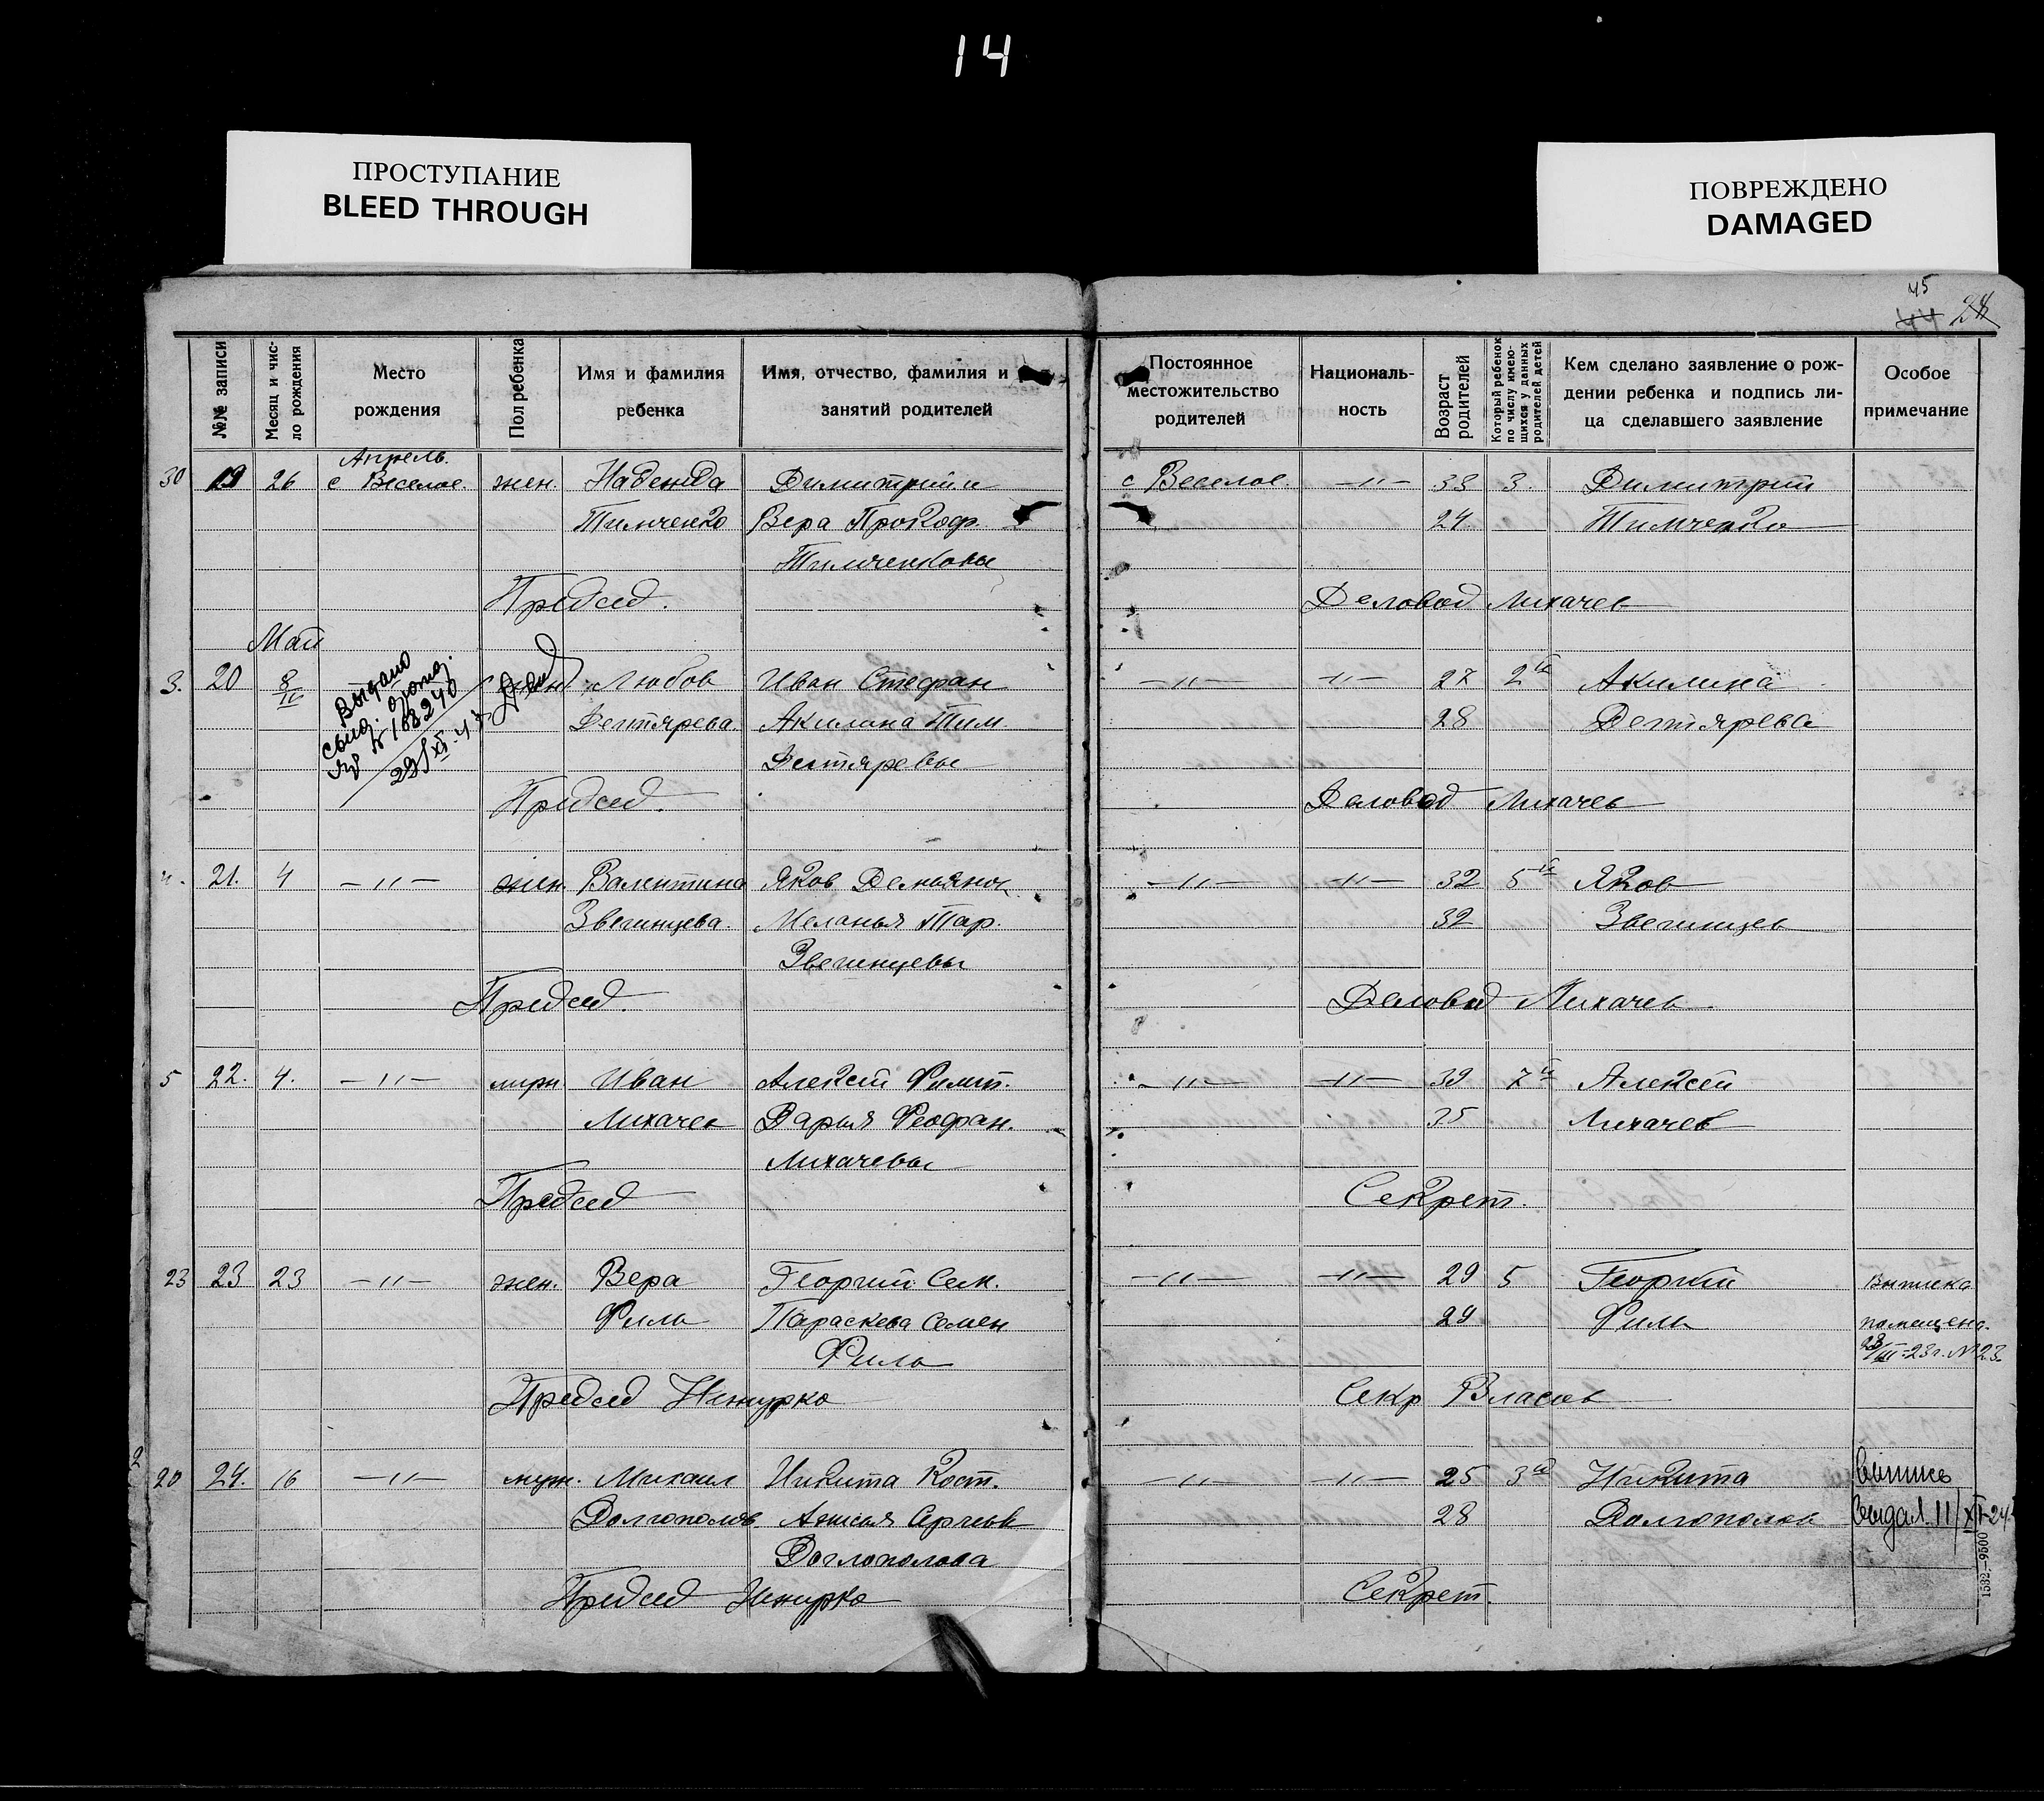 14
ПРОСТУПАНИЕ
BLEED THROUGH
ПОВРЕЖДЕНО
DAMAGED
45
44 24
№№ записи
Месяц и чис-
ло рождения
Место
рождения
Пол ребенка
Имя и фамилия
ребенка
Имя, отчество, фамилия и
занятий родителей
Постоянное
местожительство
родителей
Националь-
ность
Возраст
родителей
Который ребенок
по числу имею-
щихся у данных
родителей детей
Кем сделано заявление о рож-
дении ребенка и подпись ли-
ца сделавшего заявление
Особое
примечание
Апрель.
30 19 26 с Веселое. жен. Надежда Димитрий и с Веселое. —〃— 33 3. Димитрий
Тимченко Вера Прокоф. 24 Тимченко
Тимченковы
Председ. Деловод Лихачев
Май
3. 20 8 жен Любов Иван Стефан —〃— —〃— 27 2й Акилина
Выдано
свид. о рожд.
№ 188240
29/XI-43
Дехтярева. Акилина Тим. 28 Дехтярева
Дехтяревы
Председ. Деловод Лихачев
4. 21. 4 —〃— жен. Валентина Яков Демьянов —〃— —〃— 32 5й Яков
Звегинцева. Меланья Тар. 32 Звегинцев
Звегинцевы
Председ. Деловод Лихачев
5 22. 4. —〃— муж. Иван Алексей Филип. —〃— —〃— 39 7й Алексей
Лихачев Дарья Феофан. 35 Лихачев
Лихачевы
Председ Секрет.
23 23 23 —〃— жен. Вера Георгий Сем. —〃— —〃— 29 5 Георгий Выписка
Филь Параскева Семен 29 Филь помещена.
Филь 28/III-23г. №23
Председ Ненурко Секр Власов
20 24. 16 —〃— муж. Михаил Никита Кост. —〃— —〃— 25 3й Никита Выпись
Долгополов. Анисья Сергеев 28 Долгополов выдал. 11/XI-24
Доглополова
Председ Ненурко Секрет.
1532—9500